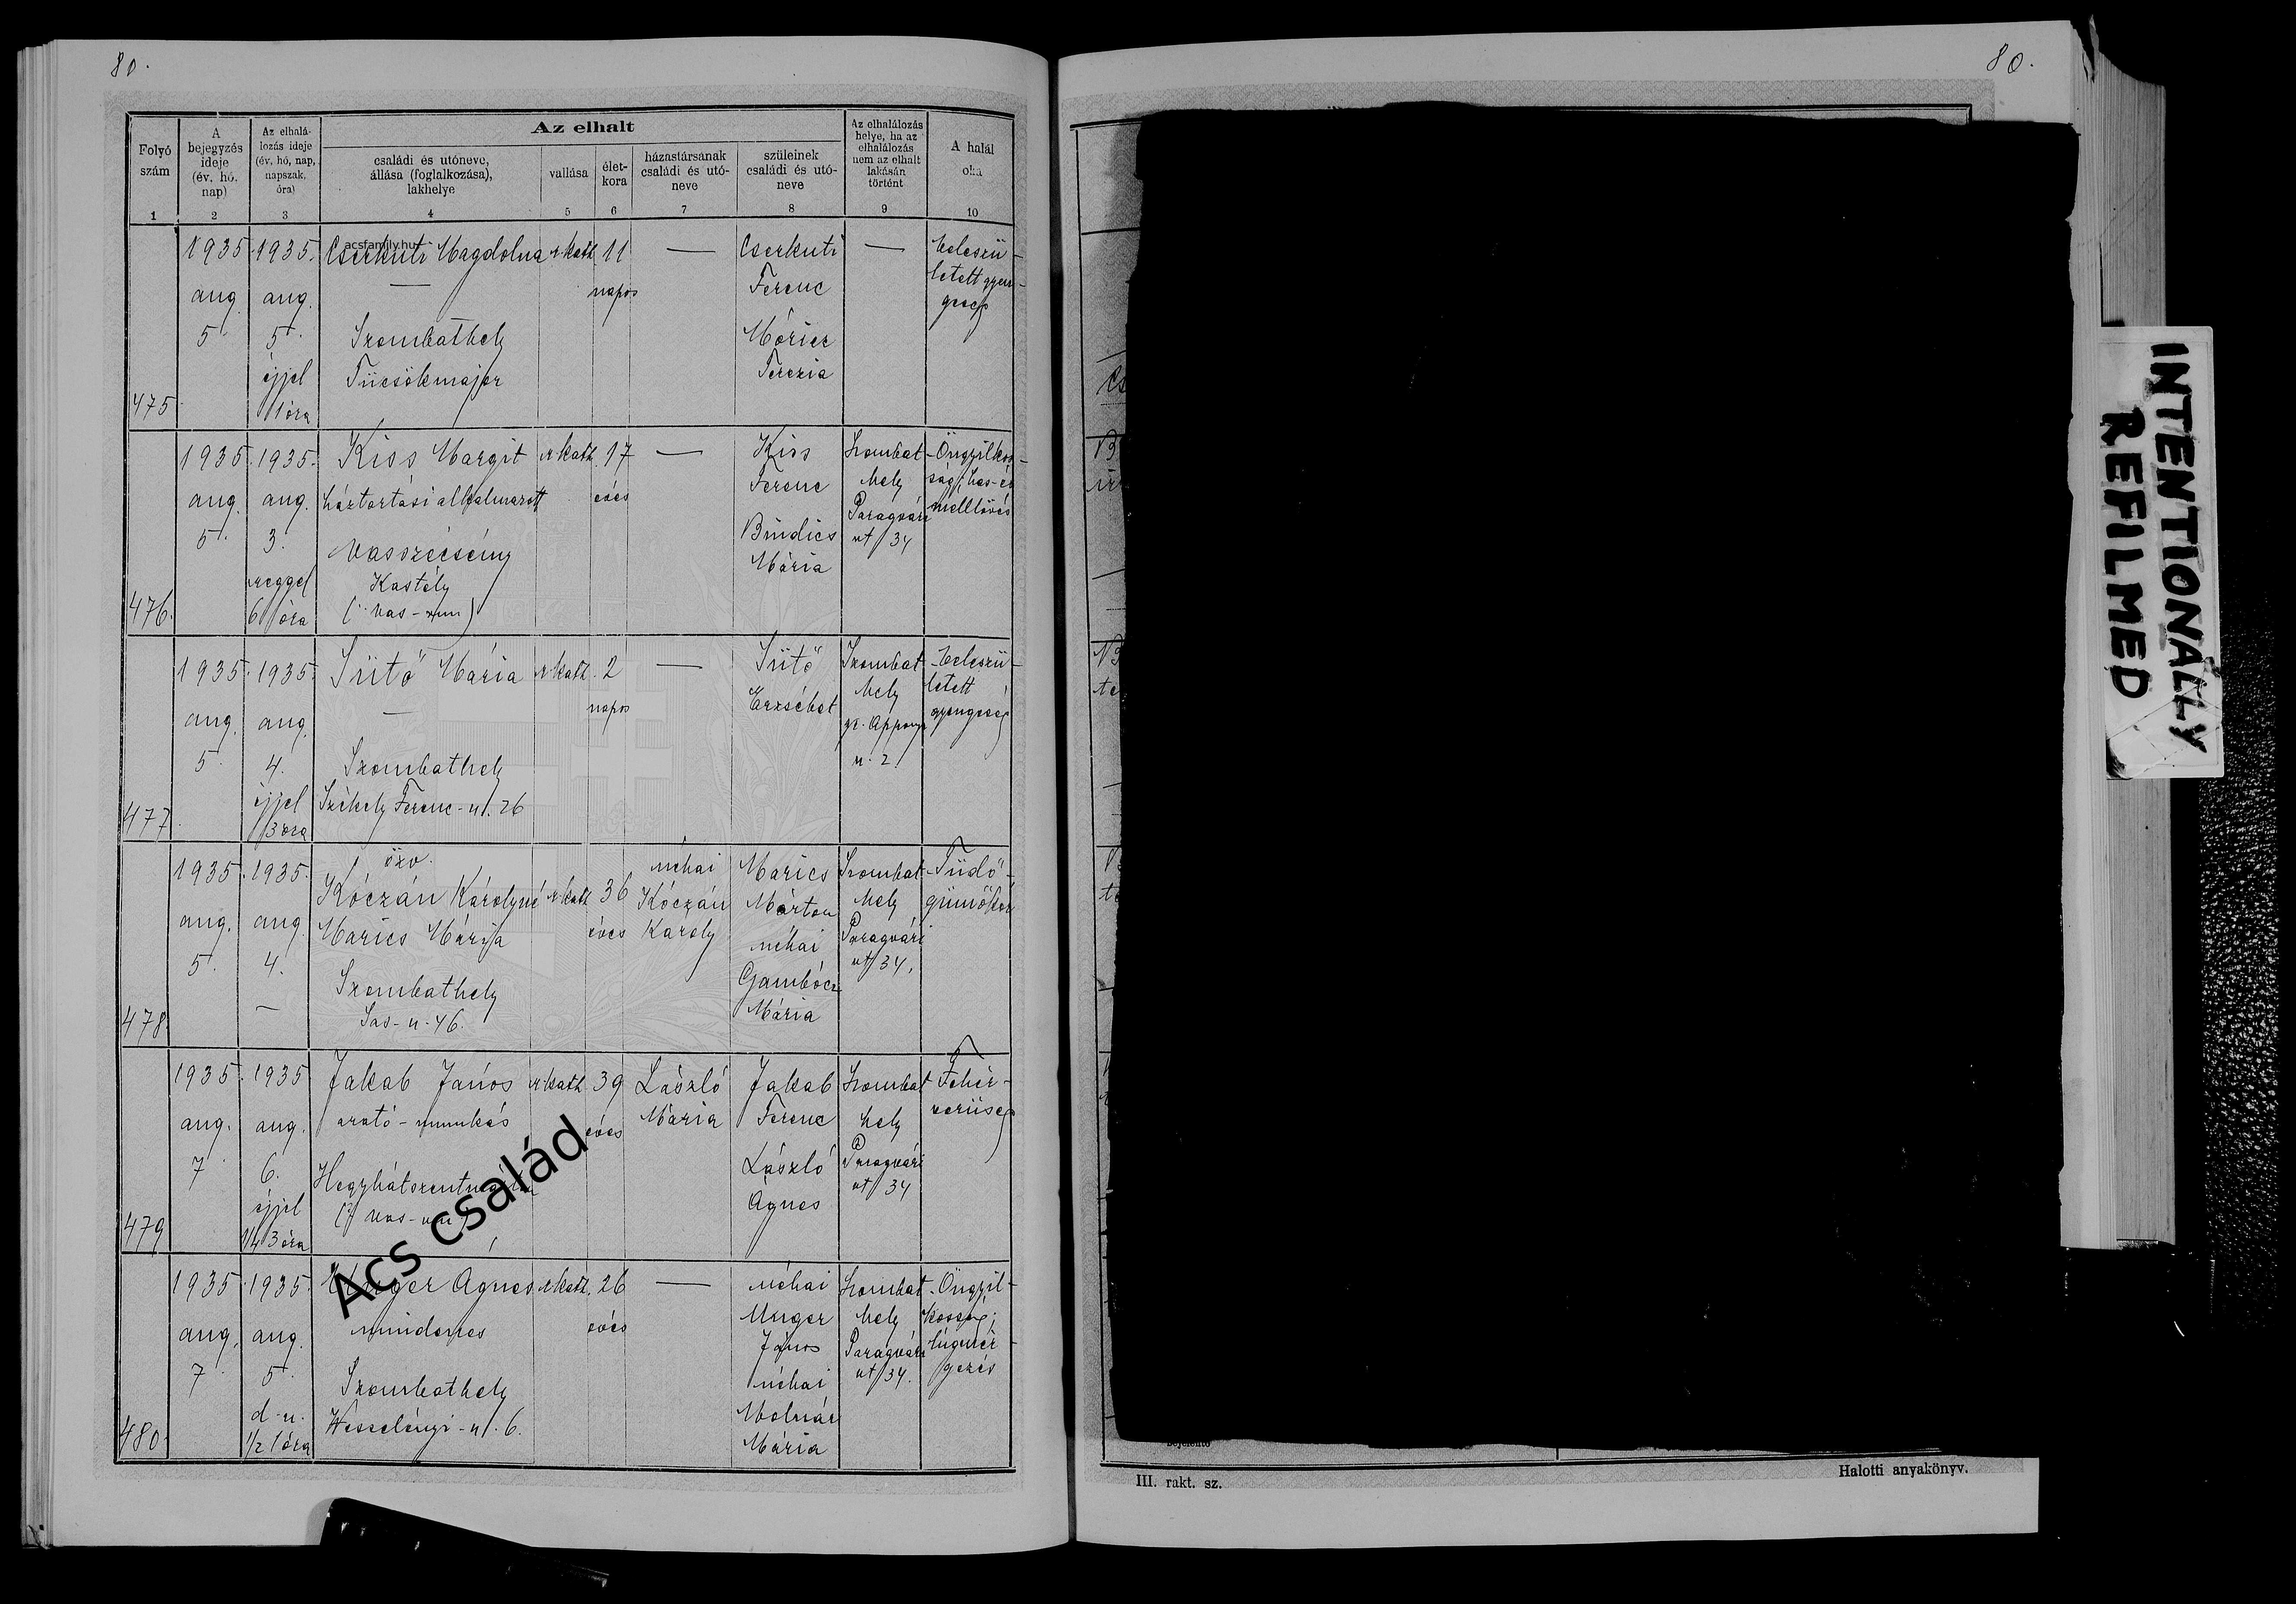 80.
80.
Folyó
szám
1
A
bejegyzés
ideje
(év, hó,
nap)
2
Az elhalá-
lozás ideje
(év, hó, nap,
napszak,
óra)
3
Az elhalt
családi és utóneve,
állása (foglalkozása),
lakhelye
4
vallása
5
élet-
kora
6
házastársának
családi és utó-
neve
7
szüleinek
családi és utó-
neve
8
Az elhalálozás
helye, ha az
elhalálozás
nem az elhalt
lakásán
történt
9
A halál
oka
10
475
1935
aug.
5.
1935.
aug.
5.
éjjel
1 óra
Cserkuti Magdolna
acsfamily.hu
—
Szombathely
Tücsökmajor
r. kath.
11
napos
—
Cserkuti
Ferenc
Móricz
Terézia
—
Veleszü-
letett gyen-
geség
476.
1935.
aug.
5.
1935.
aug.
3.
reggel
6 óra
Kiss Margit
háztartási alkalmazott
Vasszécsény
Kastély
(Vas-vm)
r. kath.
17
éves
—
Kiss
Ferenc
Bindics
Mária
Szombat-
hely
Paragvári
út 34
Öngyilkos-
ság, has- és
melllövés
477.
1935.
aug.
5.
1935.
aug.
4.
éjjel
3 óra
Sütő Mária
—
Szombathely
Székely Ferenc-u. 26
r. kath.
2
napos
—
Sütő
Erzsébet
Szombat-
hely
gr. Apponyi
u. 2.
Veleszü-
letett
gyengeség
478.
1935.
aug.
5.
1935.
aug.
4.
—
özv.
Kóczán Károlyné
Marics Mária
Szombathely
Sas-u. 46.
r. kath.
36
éves
néhai
Kóczán
Károly
Marics
Márton
néhai
Gambócz
Mária
Szombat-
hely
Paragvári
út 34.
Tüdő-
gümőkór
479
1935.
aug.
7.
1935
aug.
6.
éjjel
1/4 3 óra
Jakab János
arató-munkás
(Vas-vm)
r. kath.
39
éves
László
Mária
Jakab
Ferenc
László
Ágnes
Szombat-
hely
Paragvári
út 34
Fehér-
vérüség
Acs család
480.
1935.
aug.
7.
1935.
aug.
5.
d. u.
1/2 1 óra
Unger Ágnes
mindenes
Szombathely
Wesselényi-u. 6.
r. kath.
26
éves
—
néhai
Unger
János
néhai
Molnár
Mária
Szombat-
hely
Paragvári
út 34.
Öngyil-
kosság;
lúgmér-
gezés
III. rakt. sz.
Halotti anyakönyv.
INTENTIONALLY
REFILMED